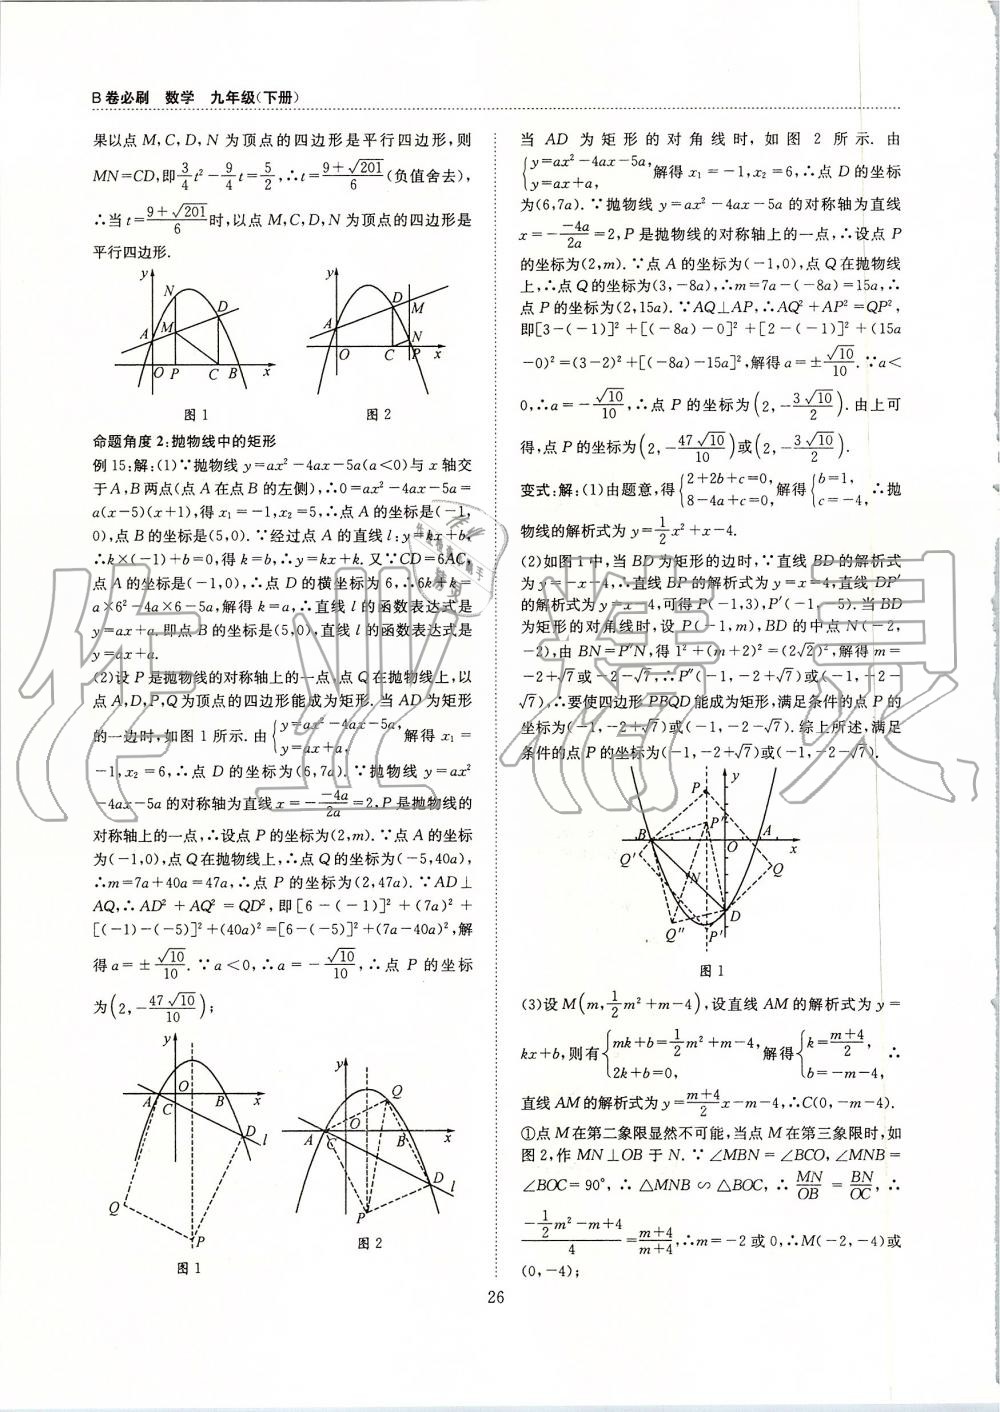 B卷必刷 数学 九年级(下册)
果以点 M,C,D,N 为顶点的四边形是平行四边形,则
MN=CD,即3/4t²-9/4t=5/2,∴t=(9+√201)/6(负值舍去),
∴当t=(9+√201)/6时,以点 M,C,D,N 为顶点的四边形是
平行四边形.
y N D A M O P C B x
y D M A N O C P x
图1 图2
命题角度2:抛物线中的矩形
例15:解:(1)∵抛物线 y=ax²-4ax-5a(a<0)与 x 轴交
于 A,B 两点(点 A 在点 B 的左侧),∴0=ax²-4ax-5a=
a(x-5)(x+1),得 x₁=-1,x₂=5,∴点 A 的坐标是(-1,
0),点 B 的坐标是(5,0).∵经过点 A 的直线 l:y=kx+b,
∴k×(-1)+b=0,得 k=b,∴y=kx+k.又∵CD=6AC,
点 A 的坐标是(-1,0),∴点 D 的横坐标为 6,∴6k+k=
a×6²-4a×6-5a,解得 k=a,∴直线 l 的函数表达式是
y=ax+a.即点 B 的坐标是(5,0),直线 l 的函数表达式是
y=ax+a.
(2)设 P 是抛物线的对称轴上的一点,点 Q 在抛物线上,以
点 A,D,P,Q 为顶点的四边形能成为矩形.当 AD 为矩形
的一边时,如图 1 所示.由{y=ax²-4ax-5a, y=ax+a, 解得 x₁=
-1,x₂=6,∴点 D 的坐标为(6,7a).∵抛物线 y=ax²
-4ax-5a 的对称轴为直线 x=-(-4a)/2a=2,P 是抛物线的
对称轴上的一点,∴设点 P 的坐标为(2,m).∵点 A 的坐标
为(-1,0),点 Q 在抛物线上,∴点 Q 的坐标为(-5,40a),
∴m=7a+40a=47a,∴点 P 的坐标为(2,47a).∵AD⊥
AQ,∴AD²+AQ²=QD²,即[6-(-1)]²+(7a)²+
[(-1)-(-5)]²+(40a)²=[6-(-5)]²+(7a-40a)²,解
得 a=±√10/10.∵a<0,∴a=-√10/10,∴点 P 的坐标
为(2,-47√10/10);
y O A C B x D l Q P
图1
y Q O A C B x D l P
图2
当 AD 为矩形的对角线时,如图 2 所示.由
{y=ax²-4ax-5a, y=ax+a, 解得 x₁=-1,x₂=6,∴点 D 的坐标
为(6,7a).∵抛物线 y=ax²-4ax-5a 的对称轴为直线
x=-(-4a)/2a=2,P 是抛物线的对称轴上的一点,∴设点 P
的坐标为(2,m).∵点 A 的坐标为(-1,0),点 Q 在抛物线
上,∴点 Q 的坐标为(3,-8a),∴m=7a-(-8a)=15a,∴
点 P 的坐标为(2,15a).∵AQ⊥AP,∴AQ²+AP²=QP²,
即[3-(-1)]²+[(-8a)-0]²+[2-(-1)]²+(15a
-0)²=(3-2)²+[(-8a)-15a]²,解得 a=±√10/10.∵a<
0,∴a=-√10/10,∴点 P 的坐标为(2,-3√10/2).由上可
得,点 P 的坐标为(2,-47√10/10)或(2,-3√10/2).
变式:解:(1)由题意,得{2+2b+c=0, 8-4a+c=0, 解得{b=1, c=-4, ∴抛
物线的解析式为 y=1/2x²+x-4.
(2)如图 1 中,当 BD 为矩形的边时,∵直线 BD 的解析式
为 y=-x-4,∴直线 BP 的解析式为 y=x-4,直线 DP′
的解析式为 y=x-4,可得 P(-1,3),P′(-1,-5).当 BD
为矩形的对角线时,设 P(-1,m),BD 的中点 N(-2,
-2),由 BN=P″N,得 1²+(m+2)²=(2√2)²,解得 m=
-2+√7或-2-√7,∴P″(-1,-2+√7)或(-1,-2-
√7),∴要使四边形 PBQD 能成为矩形,满足条件的点 P 的
坐标为(-1,-2+√7)或(-1,-2-√7).综上所述,满足
条件的点 P 的坐标为(-1,-2+√7)或(-1,-2-√7).
y P P″ B A O x Q′ N Q D Q″ P′
图1
(3)设 M(m,1/2m²+m-4),设直线 AM 的解析式为 y=
kx+b,则有{mk+b=1/2m²+m-4, 2k+b=0, 解得{k=(m+4)/2, b=-m-4, ∴
直线 AM 的解析式为 y=(m+4)/2x-m-4,∴C(0,-m-4).
①点 M 在第二象限显然不可能,当点 M 在第三象限时,如
图 2,作 MN⊥OB 于 N.∵∠MBN=∠BCO,∠MNB=
∠BOC=90°,∴△MNB∽△BOC,∴MN/OB=BN/OC,∴
(-1/2m²-m+4)/4=(m+4)/(m+4),∴m=-2或0,∴M(-2,-4)或
(0,-4);
26
作业精灵